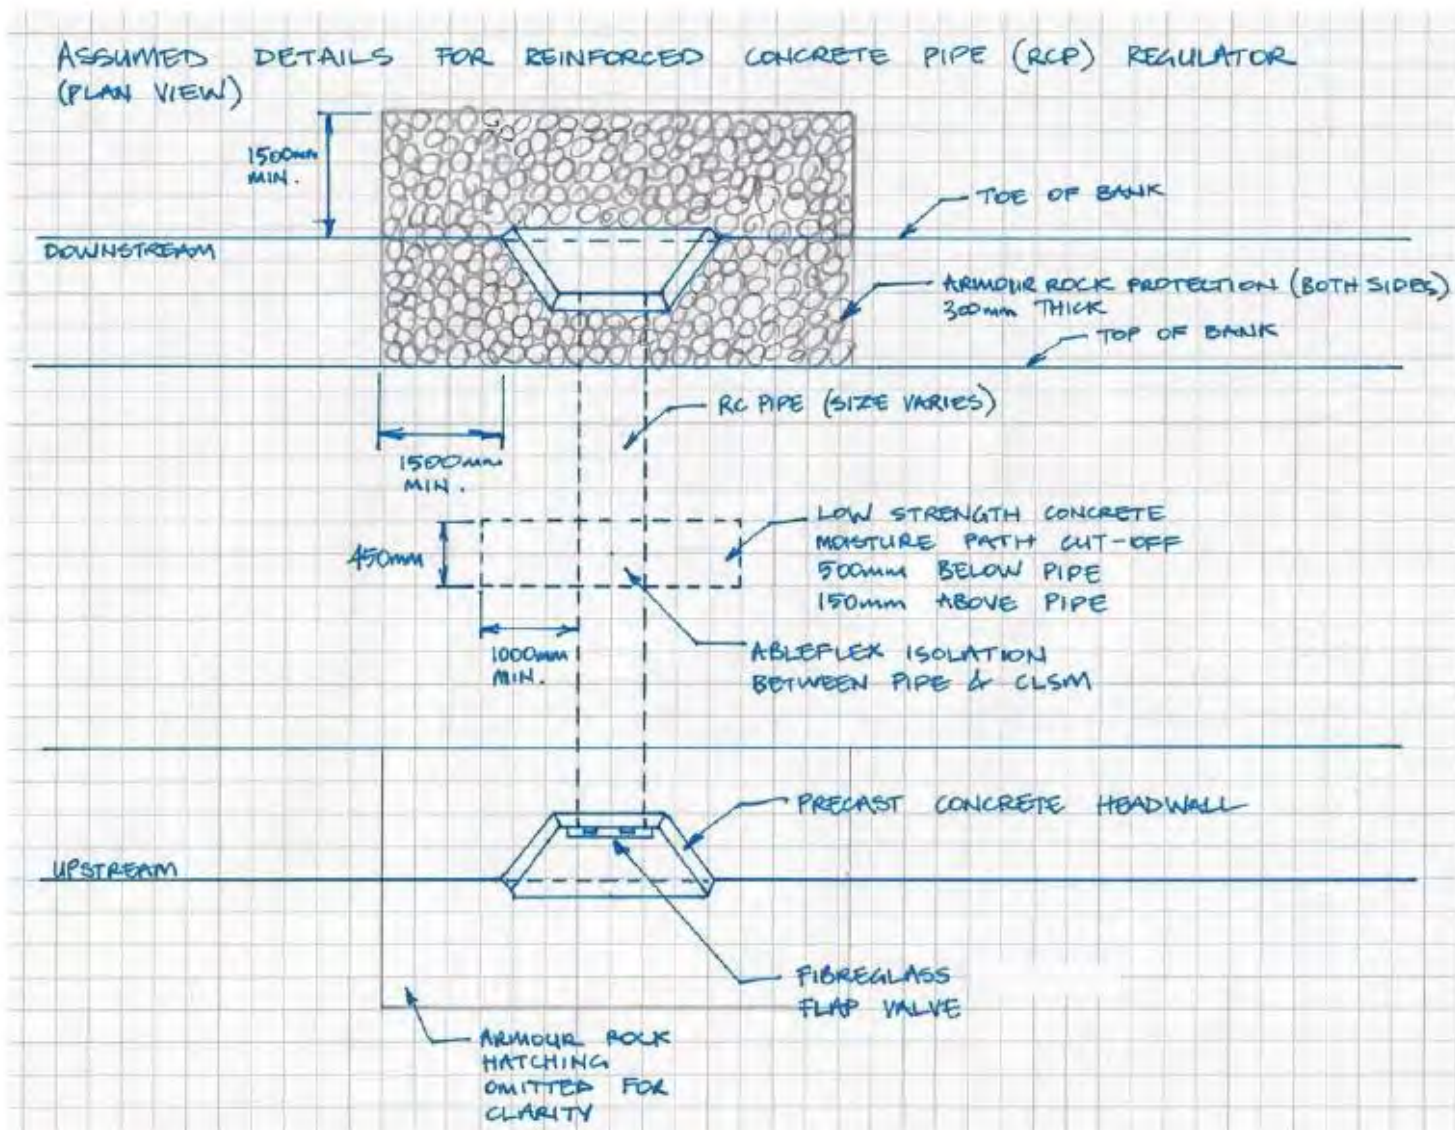 ASSUMED DETAILS FOR REINFORCED CONCRETE PIPE (RCP) REGULATOR
(PLAN VIEW)
1500mm
MIN.
TOE OF BANK
DOWNSTREAM
ARMOUR ROCK PROTECTION (BOTH SIDES)
300mm THICK
TOP OF BANK
RC PIPE (SIZE VARIES)
1500mm
MIN.
LOW STRENGTH CONCRETE
MOISTURE PATH CUT-OFF
500mm BELOW PIPE
150mm ABOVE PIPE
450mm
1000mm
MIN.
ABLEFLEX ISOLATION
BETWEEN PIPE & CLSM
PRECAST CONCRETE HEADWALL
UPSTREAM
FIBREGLASS
FLAP VALVE
ARMOUR ROCK
HATCHING
OMITTED FOR
CLARITY